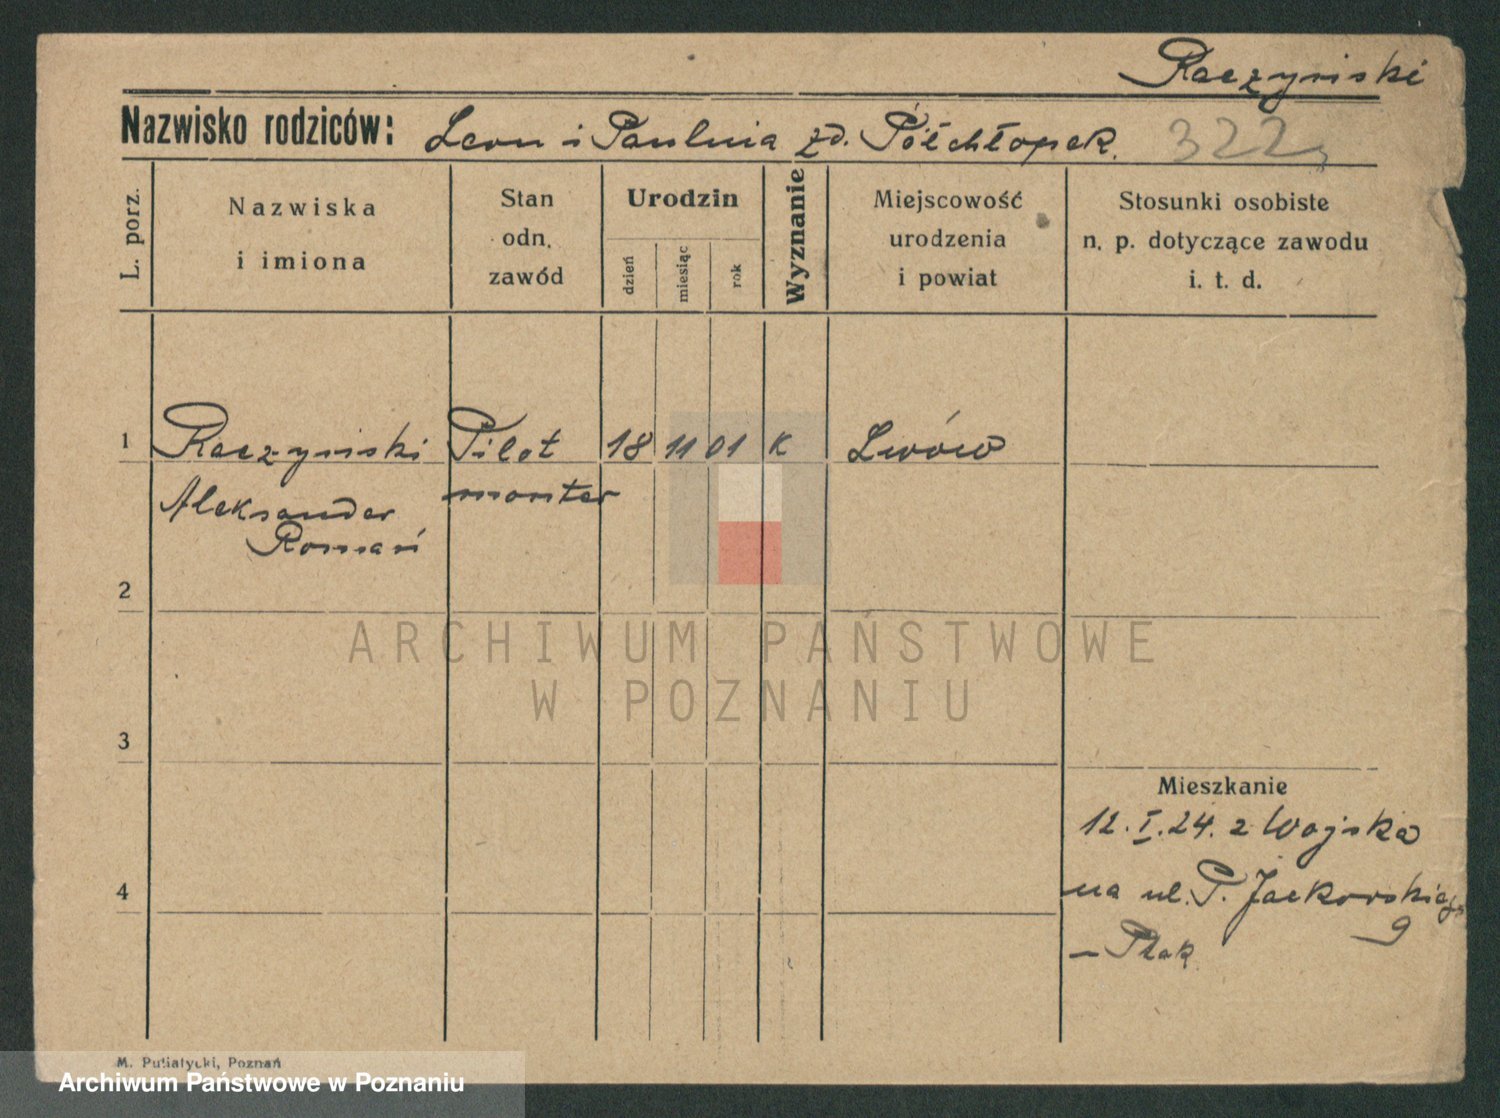 Raczyński
Nazwisko rodziców: Leon i Paulnia zd. Półchłopek.
322
L. porz.
Nazwiska
i imiona
Stan
odn.
zawód
Urodzin
dzień
miesiąc
rok
Wyznanie
Miejscowość
urodzenia
i powiat
Stosunki osobiste
n. p. dotyczące zawodu
i. t. d.
1 Raczyński Pilot 18 11 01 K Lwów
Aleksander monter
Roman
2
ARCHIWUM PAŃSTWOWE
W POZNANIU
3
Mieszkanie
12.I.24. z Wojska
4
na ul. P. Jackowskiego
9
– Ptak
M. Putiatycki, Poznań
Archiwum Państwowe w Poznaniu